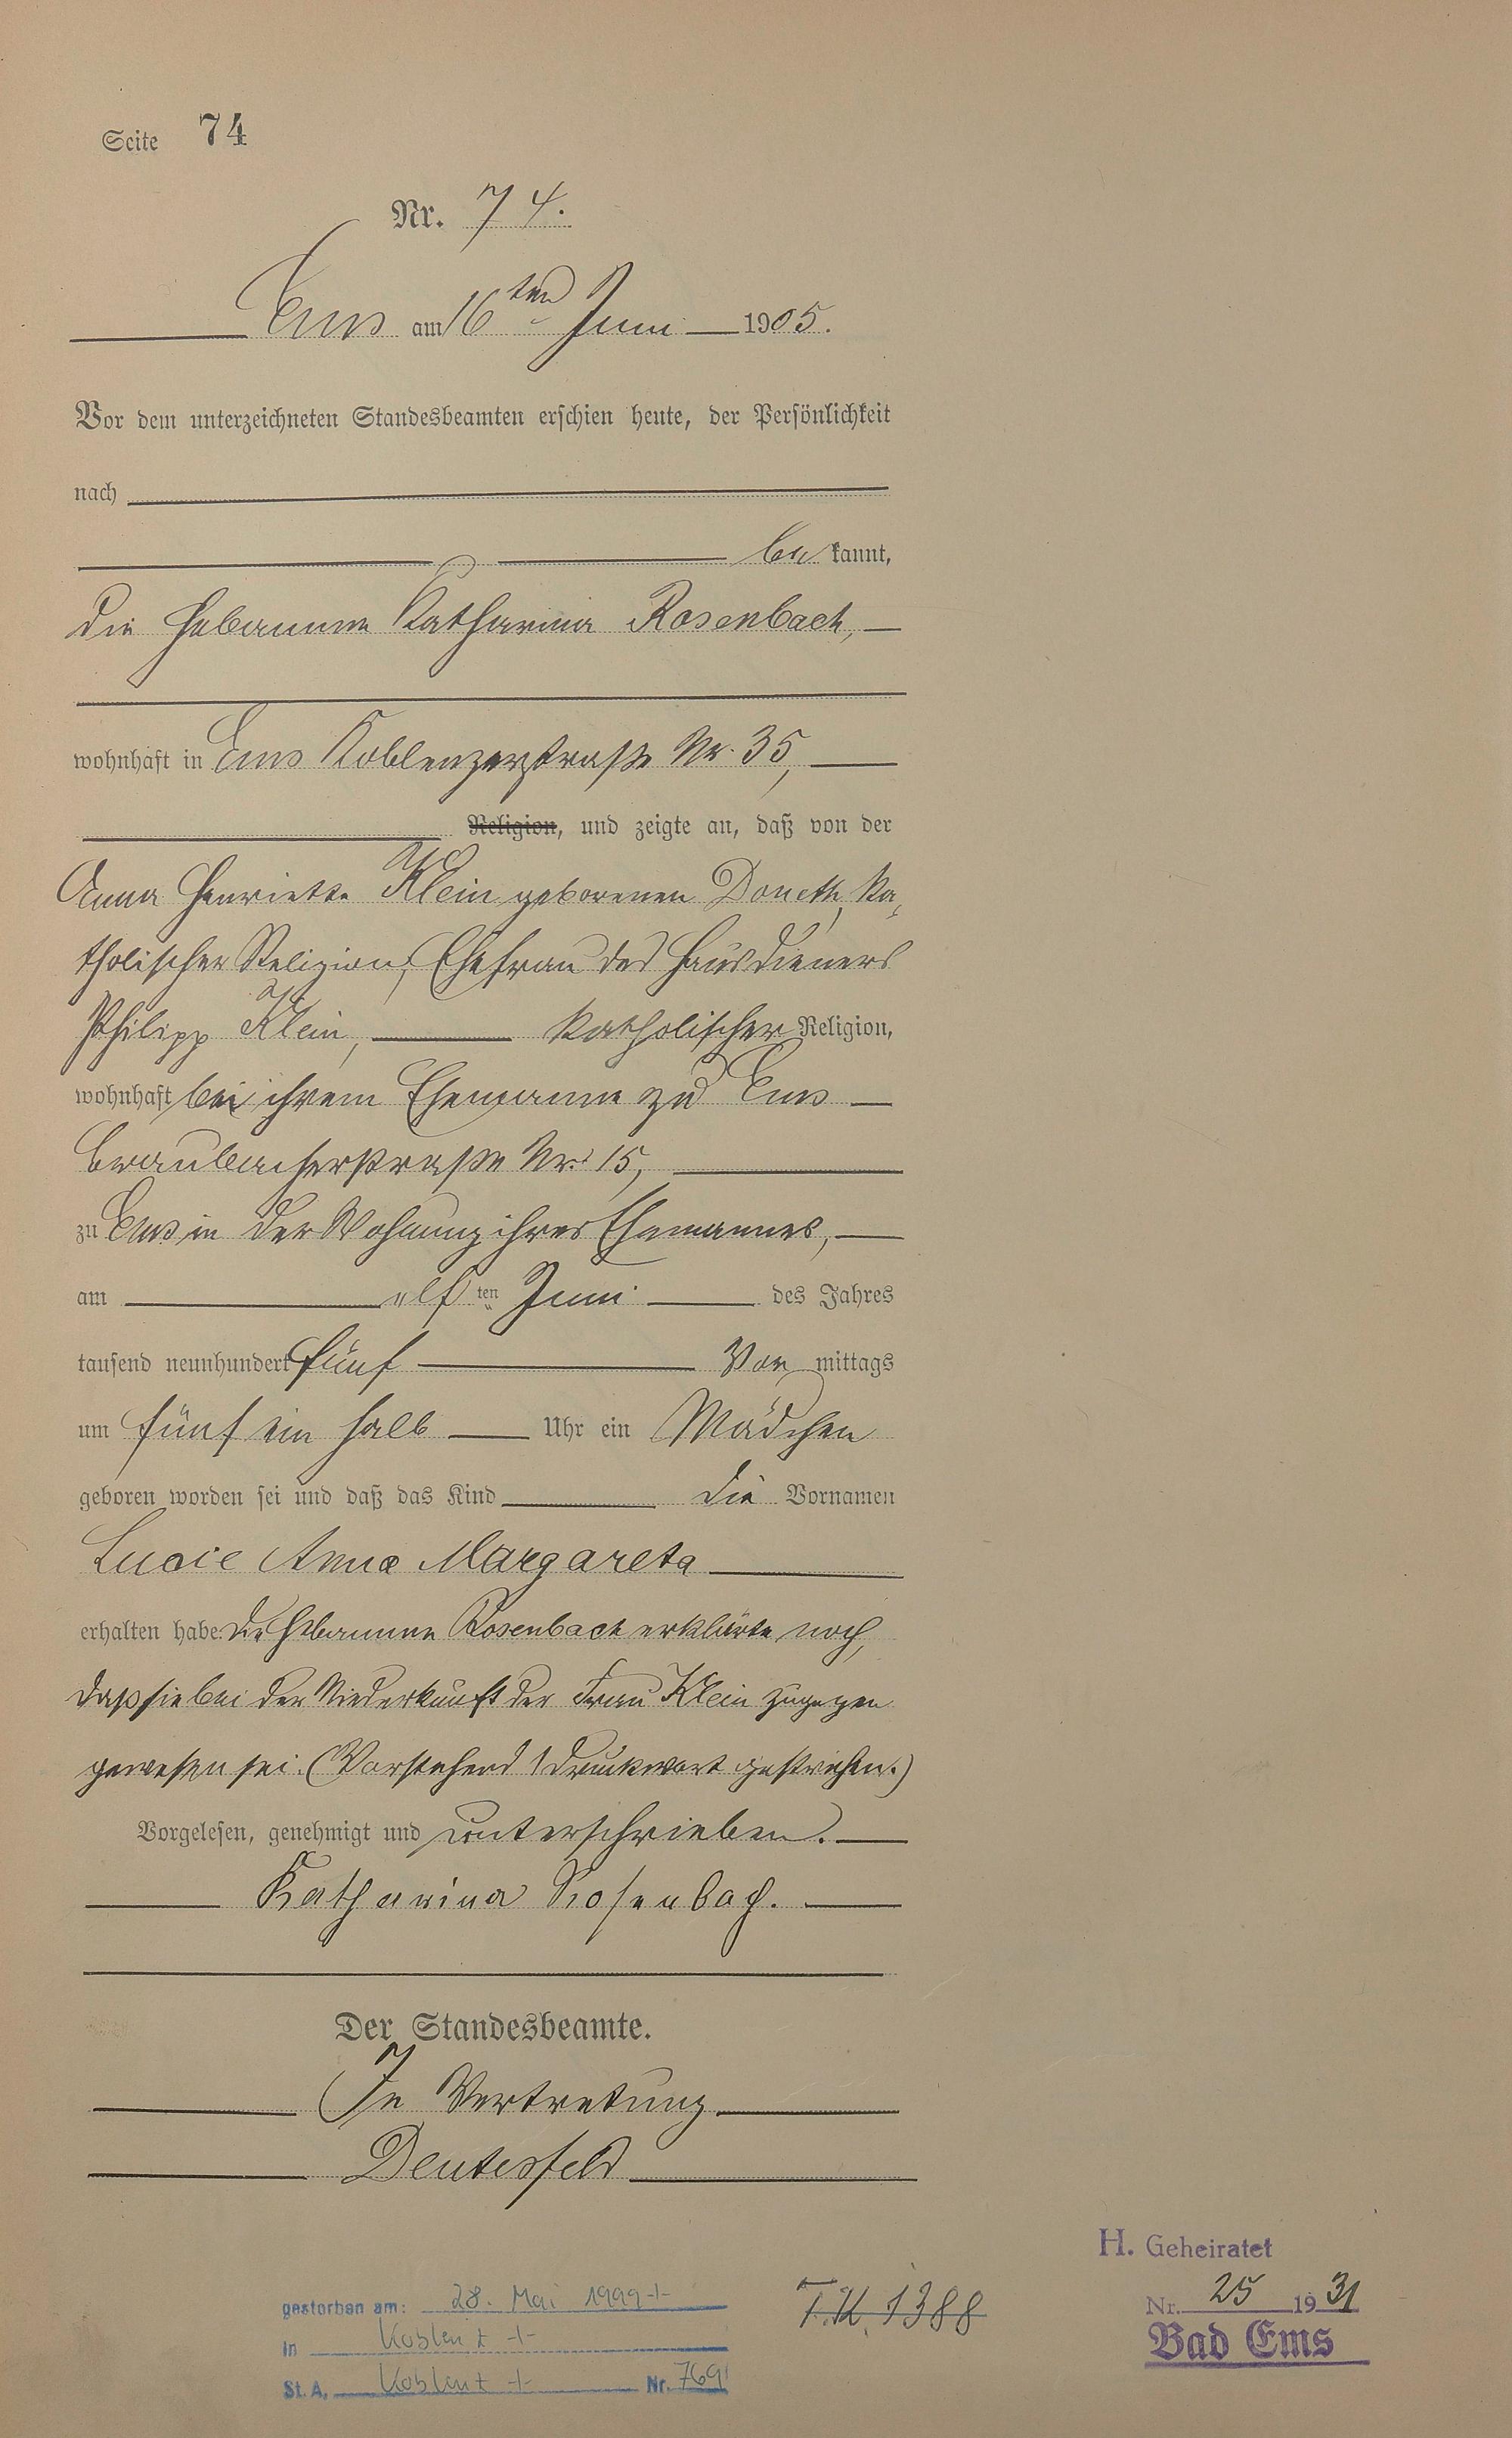 Seite 74
Nr. 74.
Ems am 16ten Juni 1905.
Vor dem unterzeichneten Standesbeamten erschien heute, der Persönlichkeit
nach
be kannt,
die Hebamme Katharina Rosenbach,
wohnhaft in Ems Koblenzerstraße Nr. 35,
Religion, und zeigte an, daß von der
Anna Henriette Klein geborenen Doneth, ka-
tholischer Religion, Ehefrau des Hausdieners
Philipp Klein, katholischer Religion,
wohnhaft bei ihrem Ehemanne zu Ems
Braubacherstraße Nr. 15,
zu Ems in der Wohnung ihres Ehemannes,
am elf ten Juni des Jahres
tausend neunhundert fünf Vor mittags
um fünf ein halb Uhr ein Mädchen
geboren worden sei und daß das Kind die Vornamen
Lucie Anna Margareta
erhalten habe. Die Hebamme Rosenbach erklärte noch,
daß sie bei der Niederkunft der Frau Klein zugegen
gewesen sei. (Vorstehend 1 Druckwort gestrichen.)
Vorgelesen, genehmigt und unterschrieben.
Katharina Rosenbach.
Der Standesbeamte.
In Vertretung
Deutesfeld
H. Geheiratet
Nr. 25 1931
Bad Ems
gestorben am: 28. Mai 1999
in Koblenz
St. A. Koblenz Nr. 769
T.K. 1388